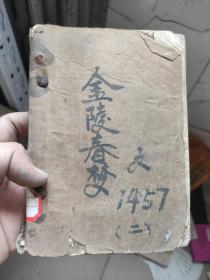 金陵春梦
文
1457
(二)